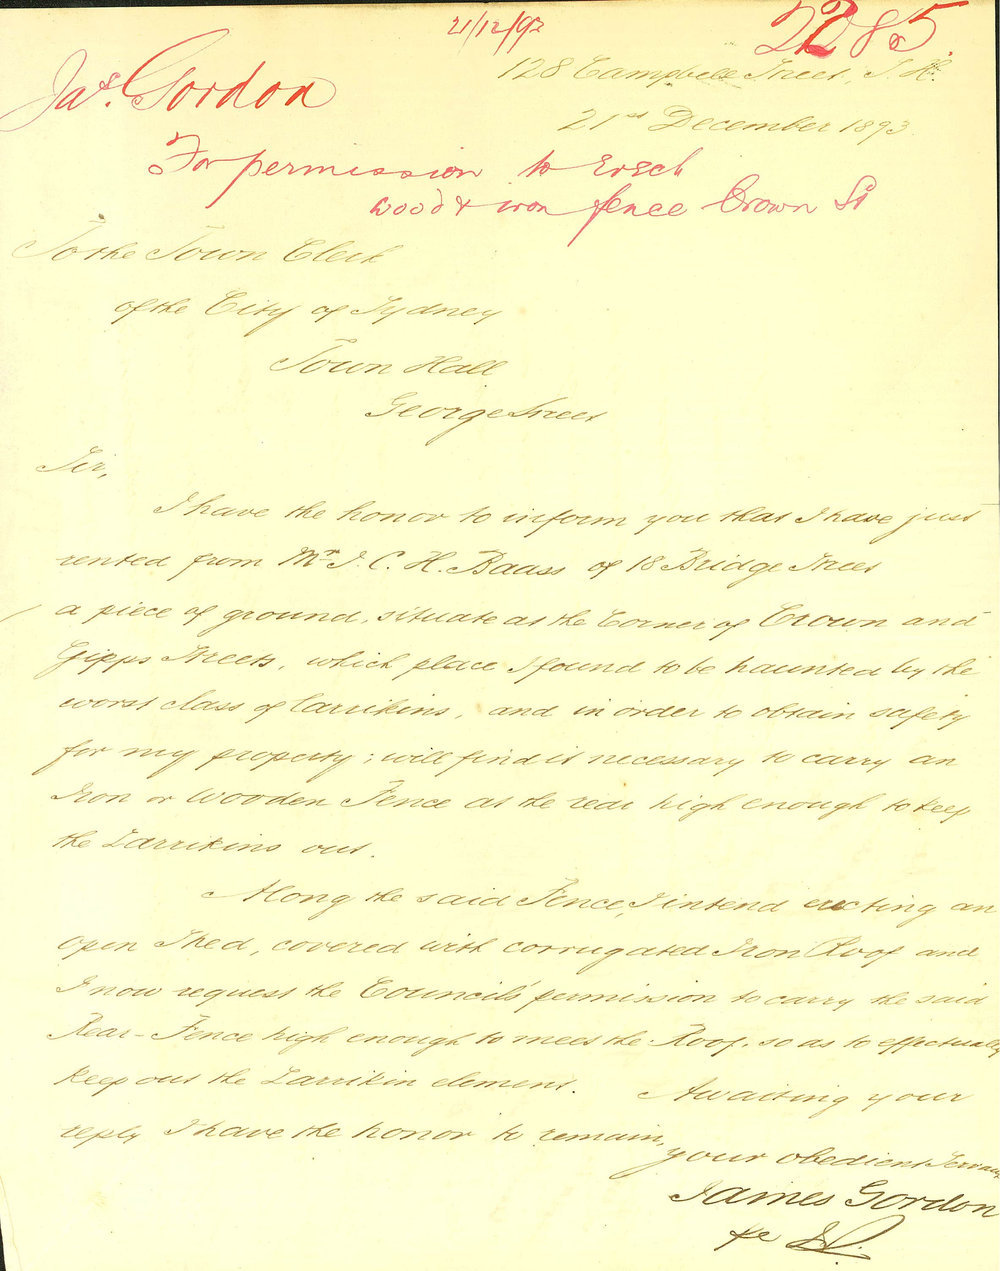 21/12/93
2285
128 Campbell Street, S. H.
Jas. Gordon
21st December 1893
For permission to erect
wood & iron fence Crown St
To the Town Clerk
of the City of Sydney
Town Hall
George Street
Sir,
I have the honor to inform you that I have just
rented from Mr J. C. H. Baass of 18 Bridge Street
a piece of ground, situate at the Corner of Crown and
Gipps Streets, which place I found to be haunted by the
worst class of larrikins, and in order to obtain safety
for my property; will find it necessary to carry an
Iron or Wooden Fence at the rear high enough to keep
the Larrikins out.
Along the said Fence, I intend erecting an
open Shed, covered with corrugated Iron Roof and
I now request the Council's permission to carry the said
Rear-Fence high enough to meet the Roof, so as to effectually
keep out the Larrikin element. Awaiting your
reply I have the honor to remain,
your obedient Servant
James Gordon